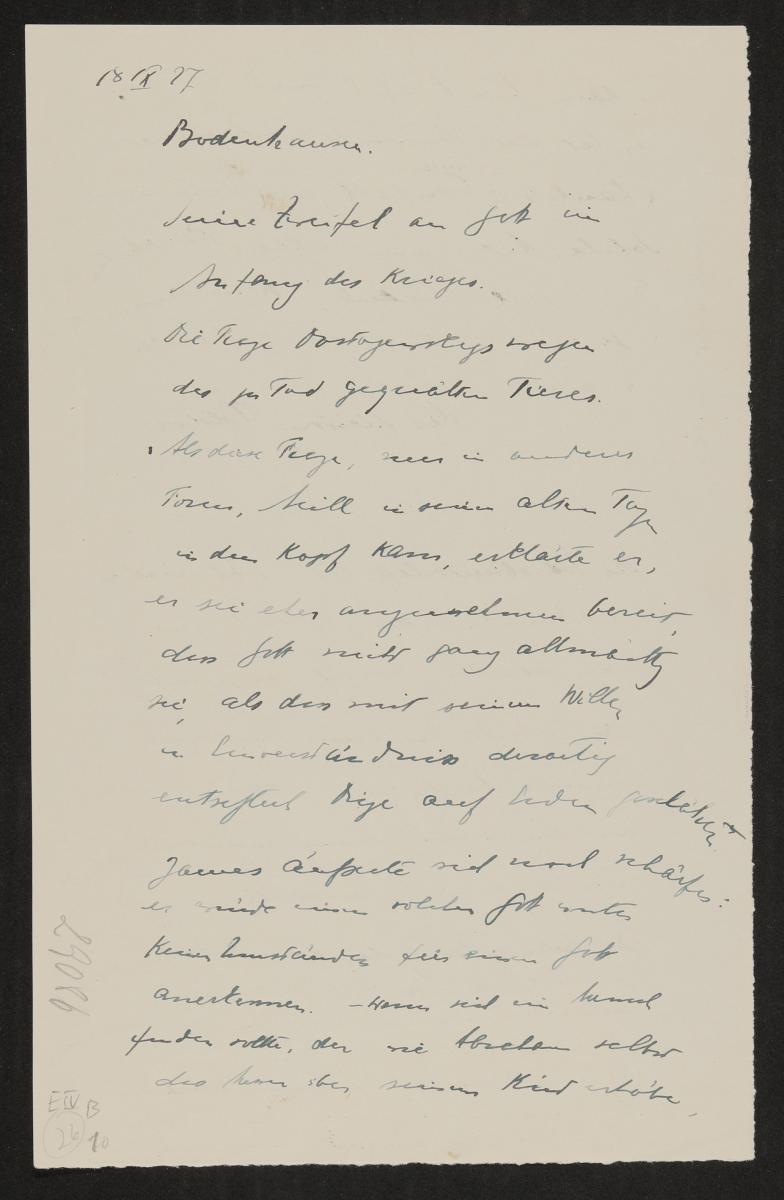 18 IX 27
Bodenhausen.
Seine Zweifel an Gott im
Anfang des Krieges.
Die Frage Dostojewskys wegen
des zu Tod gequälten Tieres.
Als diese Frage, nur in anderer
Form, Mill in seinen alten Tagen
in den Kopf kam, erklärte er,
er sei eher anzunehmen bereit,
dass Gott nicht ganz allmächtig
sei, als dass mit seinem Willen
u Einverständniss derartig
entsetzliche Dinge auf Erden geschähen
James äusserte sich noch schärfer:
er würde einen solchen Gott unter
keinen Umständen für einen Gott
anerkennen. – wenn sich ein Mensch
finden sollte, der wie Abraham selbst
das Messer über seinem Kind erhöbe,
29086
E IV B
26 10